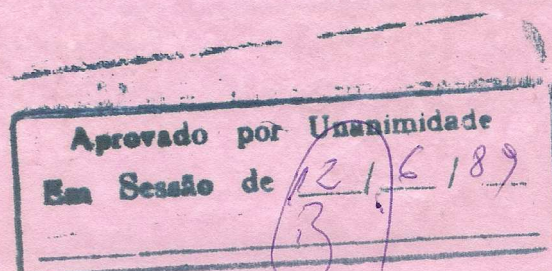 Aprovado por Unanimidade
Em Sessão de 12/6/89